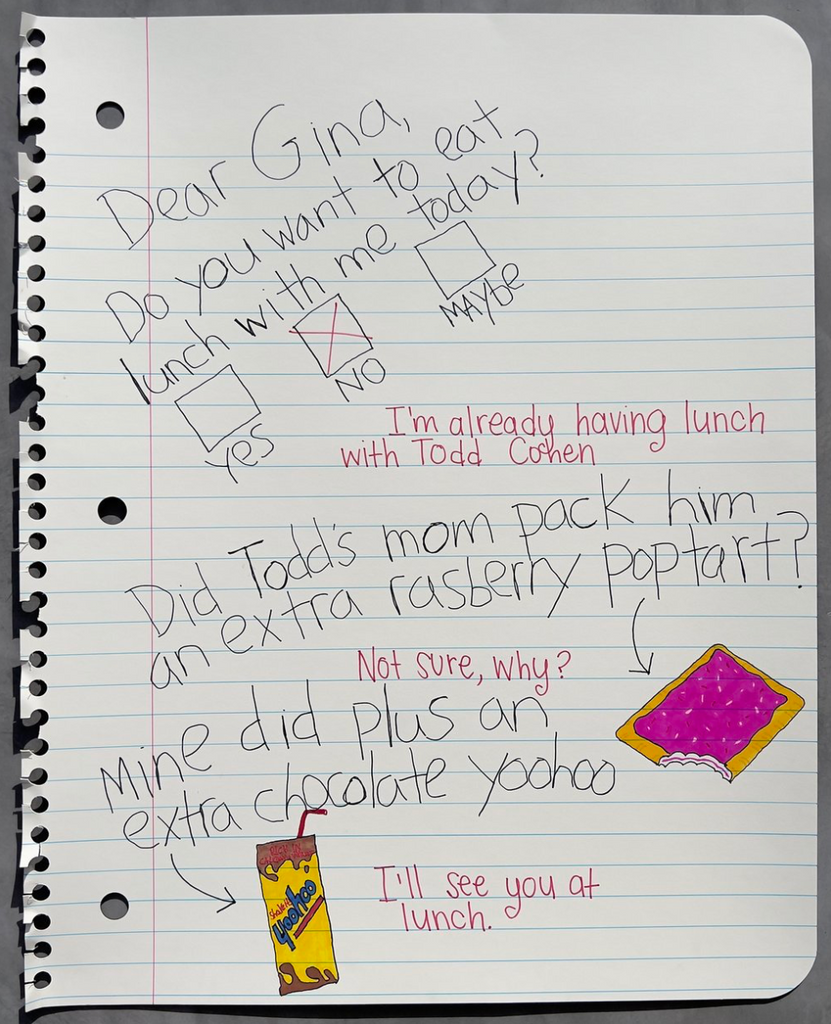 Dear Gina,
Do you want to eat
lunch with me today?
YES
NO
MAYbe
I'm already having lunch
with Todd Cohen
Did Todd's mom pack him
an extra rasberry poptart?
Not sure, why?
Mine did plus an
extra chocolate yoohoo
Yoohoo
I'll see you at
lunch.